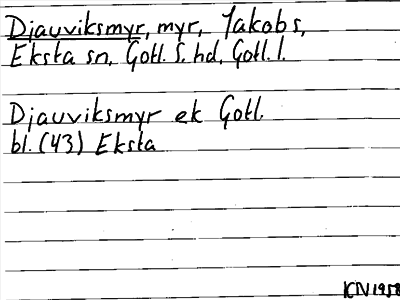 Djauviksmyr, myr, Jakobs,
Eksta sn, Gotl. S. hd, Gotl. l.
Djauviksmyr ek Gotl.
bl. (43) Eksta
KN 1958